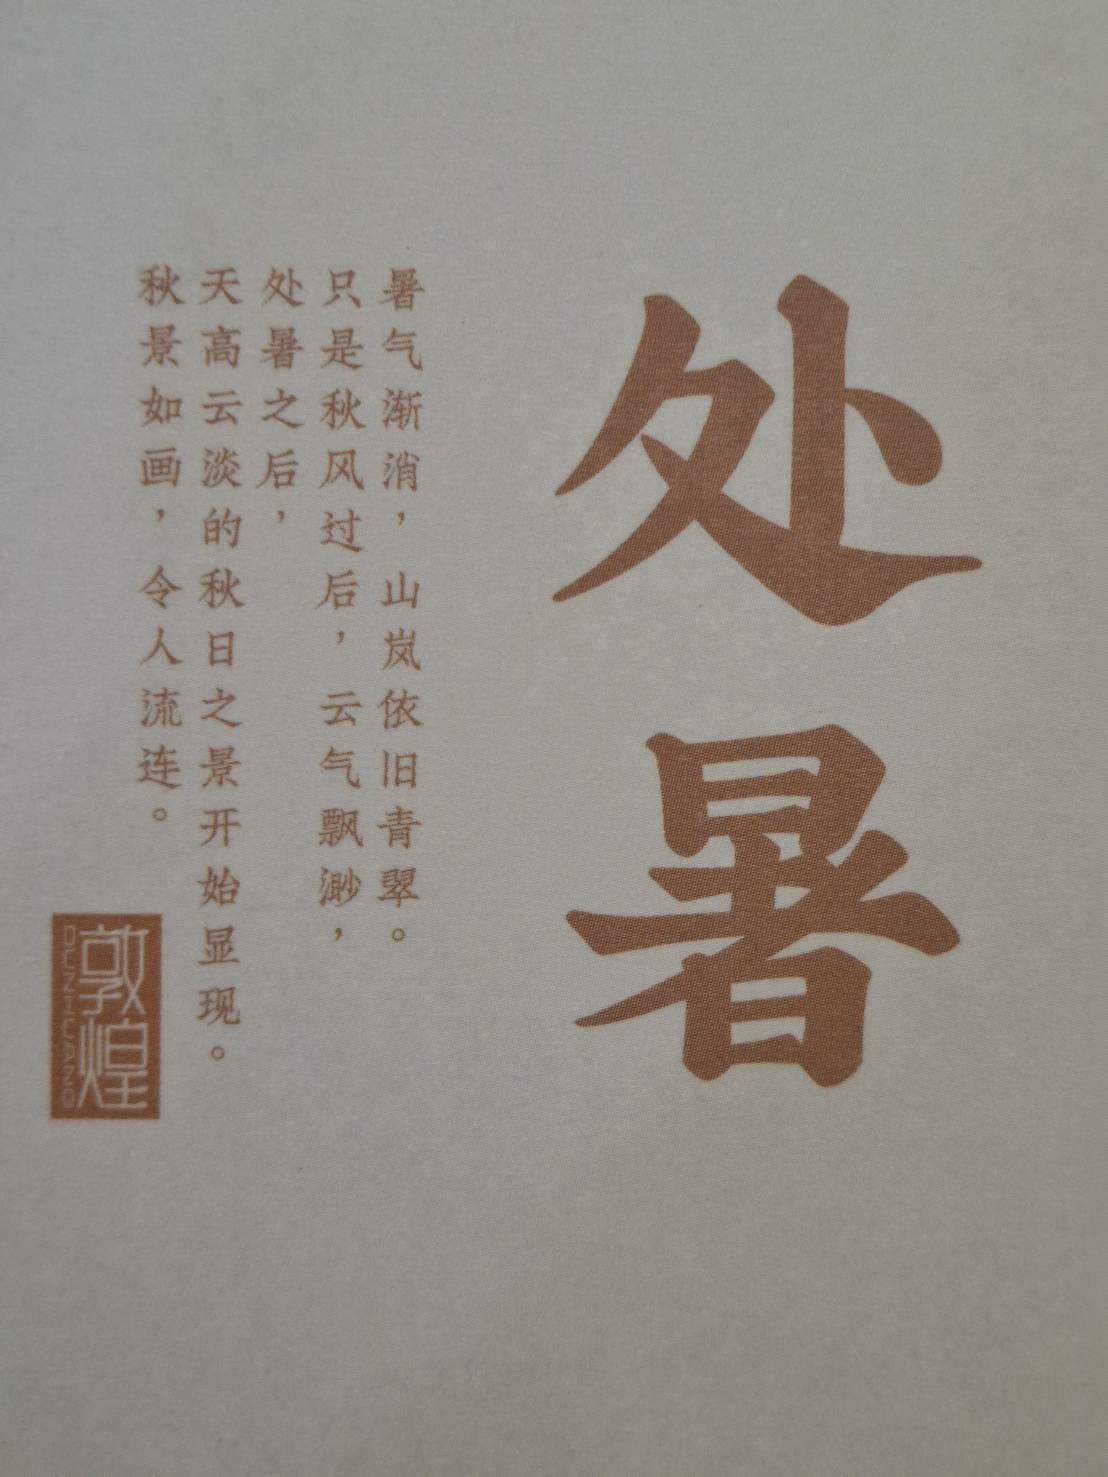 处暑
暑气渐消，山岚依旧青翠。
只是秋风过后，云气飘渺，
处暑之后，
天高云淡的秋日之景开始显现。
秋景如画，令人流连。
敦煌